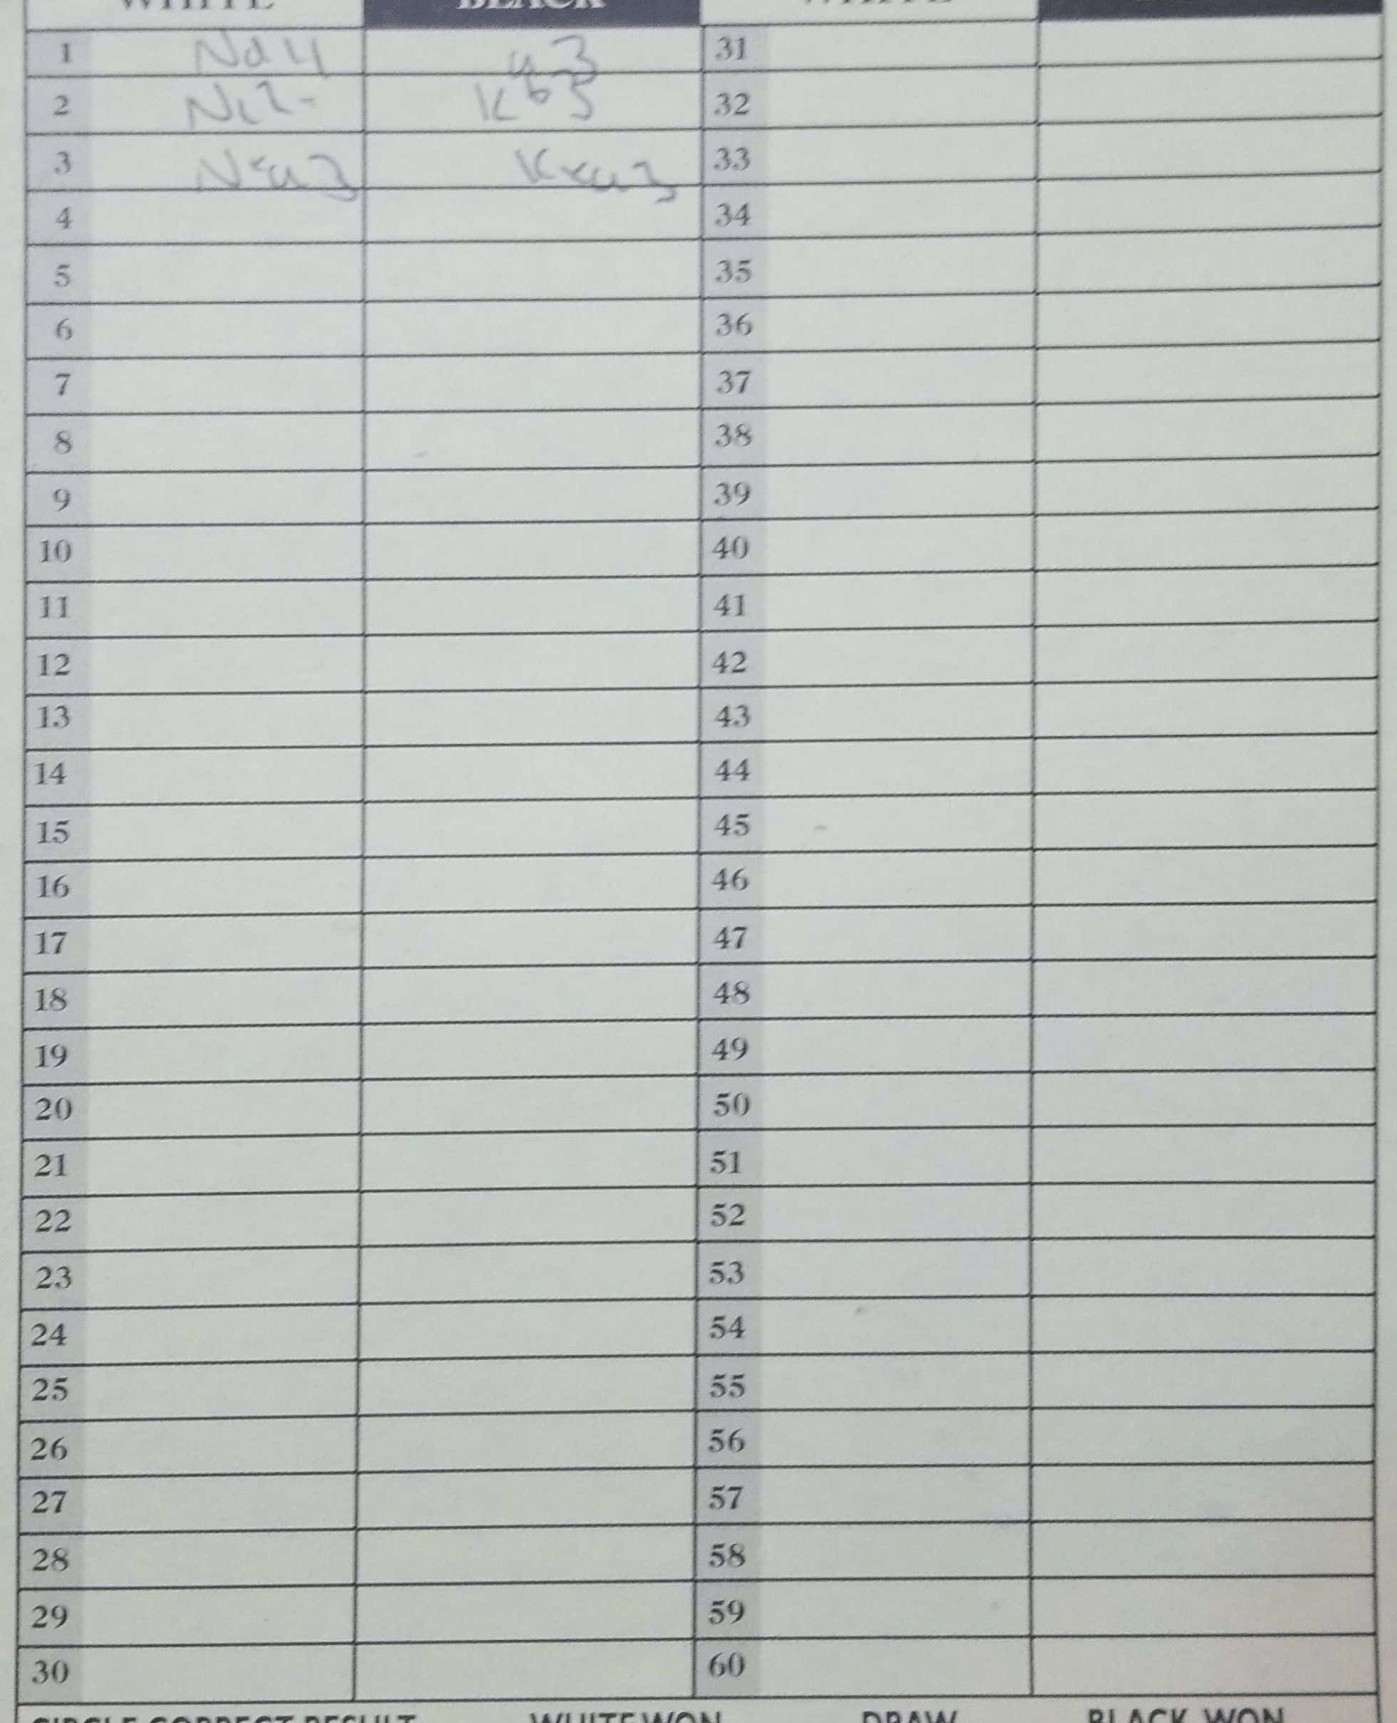 WHITE BLACK WHITE
1 Nd4 a3 31
2 Nc2 Kb3 32
3 Nxa3 Kxa3 33
4 34
5 35
6 36
7 37
8 38
9 39
10 40
11 41
12 42
13 43
14 44
15 45
16 46
17 47
18 48
19 49
20 50
21 51
22 52
23 53
24 54
25 55
26 56
27 57
28 58
29 59
30 60
CIRCLE CORRECT RESULT WHITE WON DRAW BLACK WON